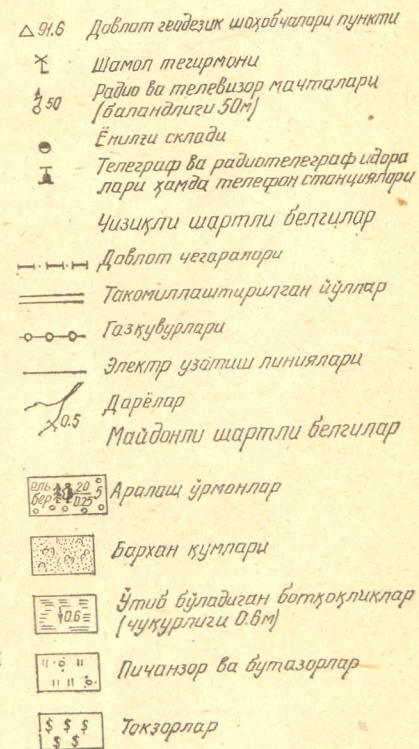 91.6 Давлат геодезик шохобчалари пункти
Шамол тегирмони
50 Радио ва телевизор мачталари
(баландлиги 50м)
Ёнилғи склади
Телеграф ва радиотелеграф идора
лари ҳамда телефон станциялари
Чизиқли шартли белгилар
Давлат чегаралари
Такомиллаштирилган йўллар
Газқувурлари
Электр узатиш линиялари
Дарёлар
0.5
Майдонли шартли белгилар
ель 20 5
бер 0.25
Аралаш ўрмонлар
Бархан қумлари
0.6 Ўтиб бўладиган ботқоқликлар
(чуқурлиги 0.6м)
Пичанзор ва бутазорлар
Токзорлар